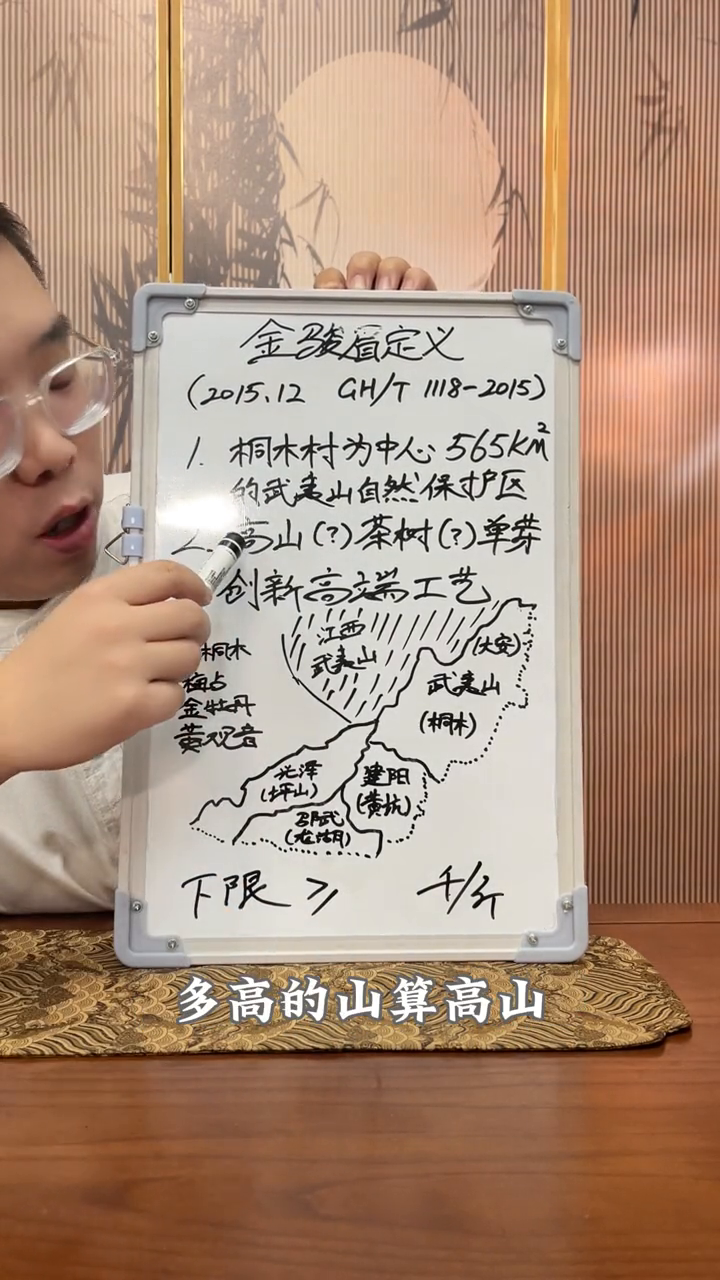 金骏眉定义
(2015.12 GH/T 1118-2015)
1. 桐木村为中心 565KM²
的武夷山自然保护区
2. 高山(?)茶树(?)单芽
创新高端工艺
江西
武夷山
(大安)
武夷山
(桐木)
桐木
梅占
金牡丹
黄观音
光泽
(坪山)
建阳
(黄坑)
邵武
(龙湖)
下限 ≥ 千/斤
多高的山算高山